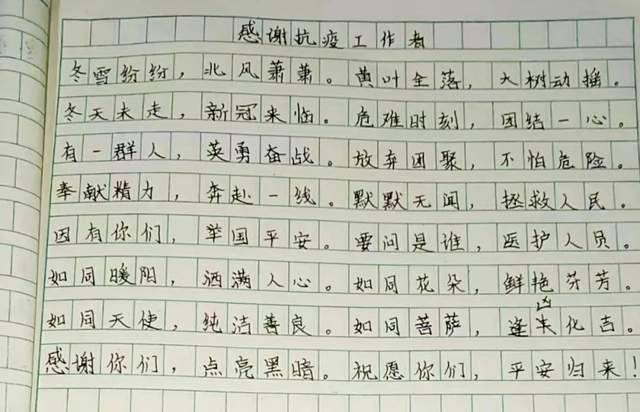 感谢抗疫工作者
冬雪纷纷，北风萧萧。黄叶全落，大树动摇。
冬天未走，新冠来临。危难时刻，团结一心。
有一群人，英勇奋战。放弃团聚，不怕危险。
奉献精力，奔赴一线。默默无闻，拯救人民。
因有你们，举国平安。要问是谁，医护人员。
如同暖阳，洒满人心。如同花朵，鲜艳芬芳。
如同天使，纯洁善良。如同菩萨，逢凶化吉。
感谢你们，点亮黑暗。祝愿你们，平安归来！